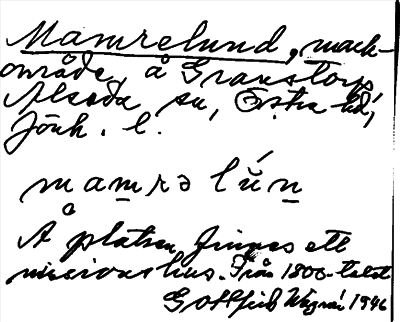 Mamrelund, mark-
område, å Granstorp,
Alseda sn, Östra hd,
Jönk. l.
mam̲rə lún̲
Å platsen finnes ett
missionshus. Från 1800-talet
Gottfrid 1946